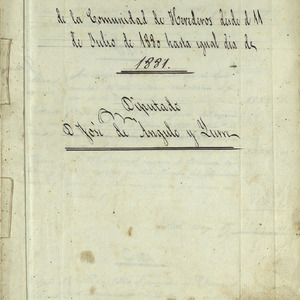 de la Comunidad de Herederos desde el 11
de Julio de 1880 hasta igual dia de
1881.
Diputado
D. José de Angulo y